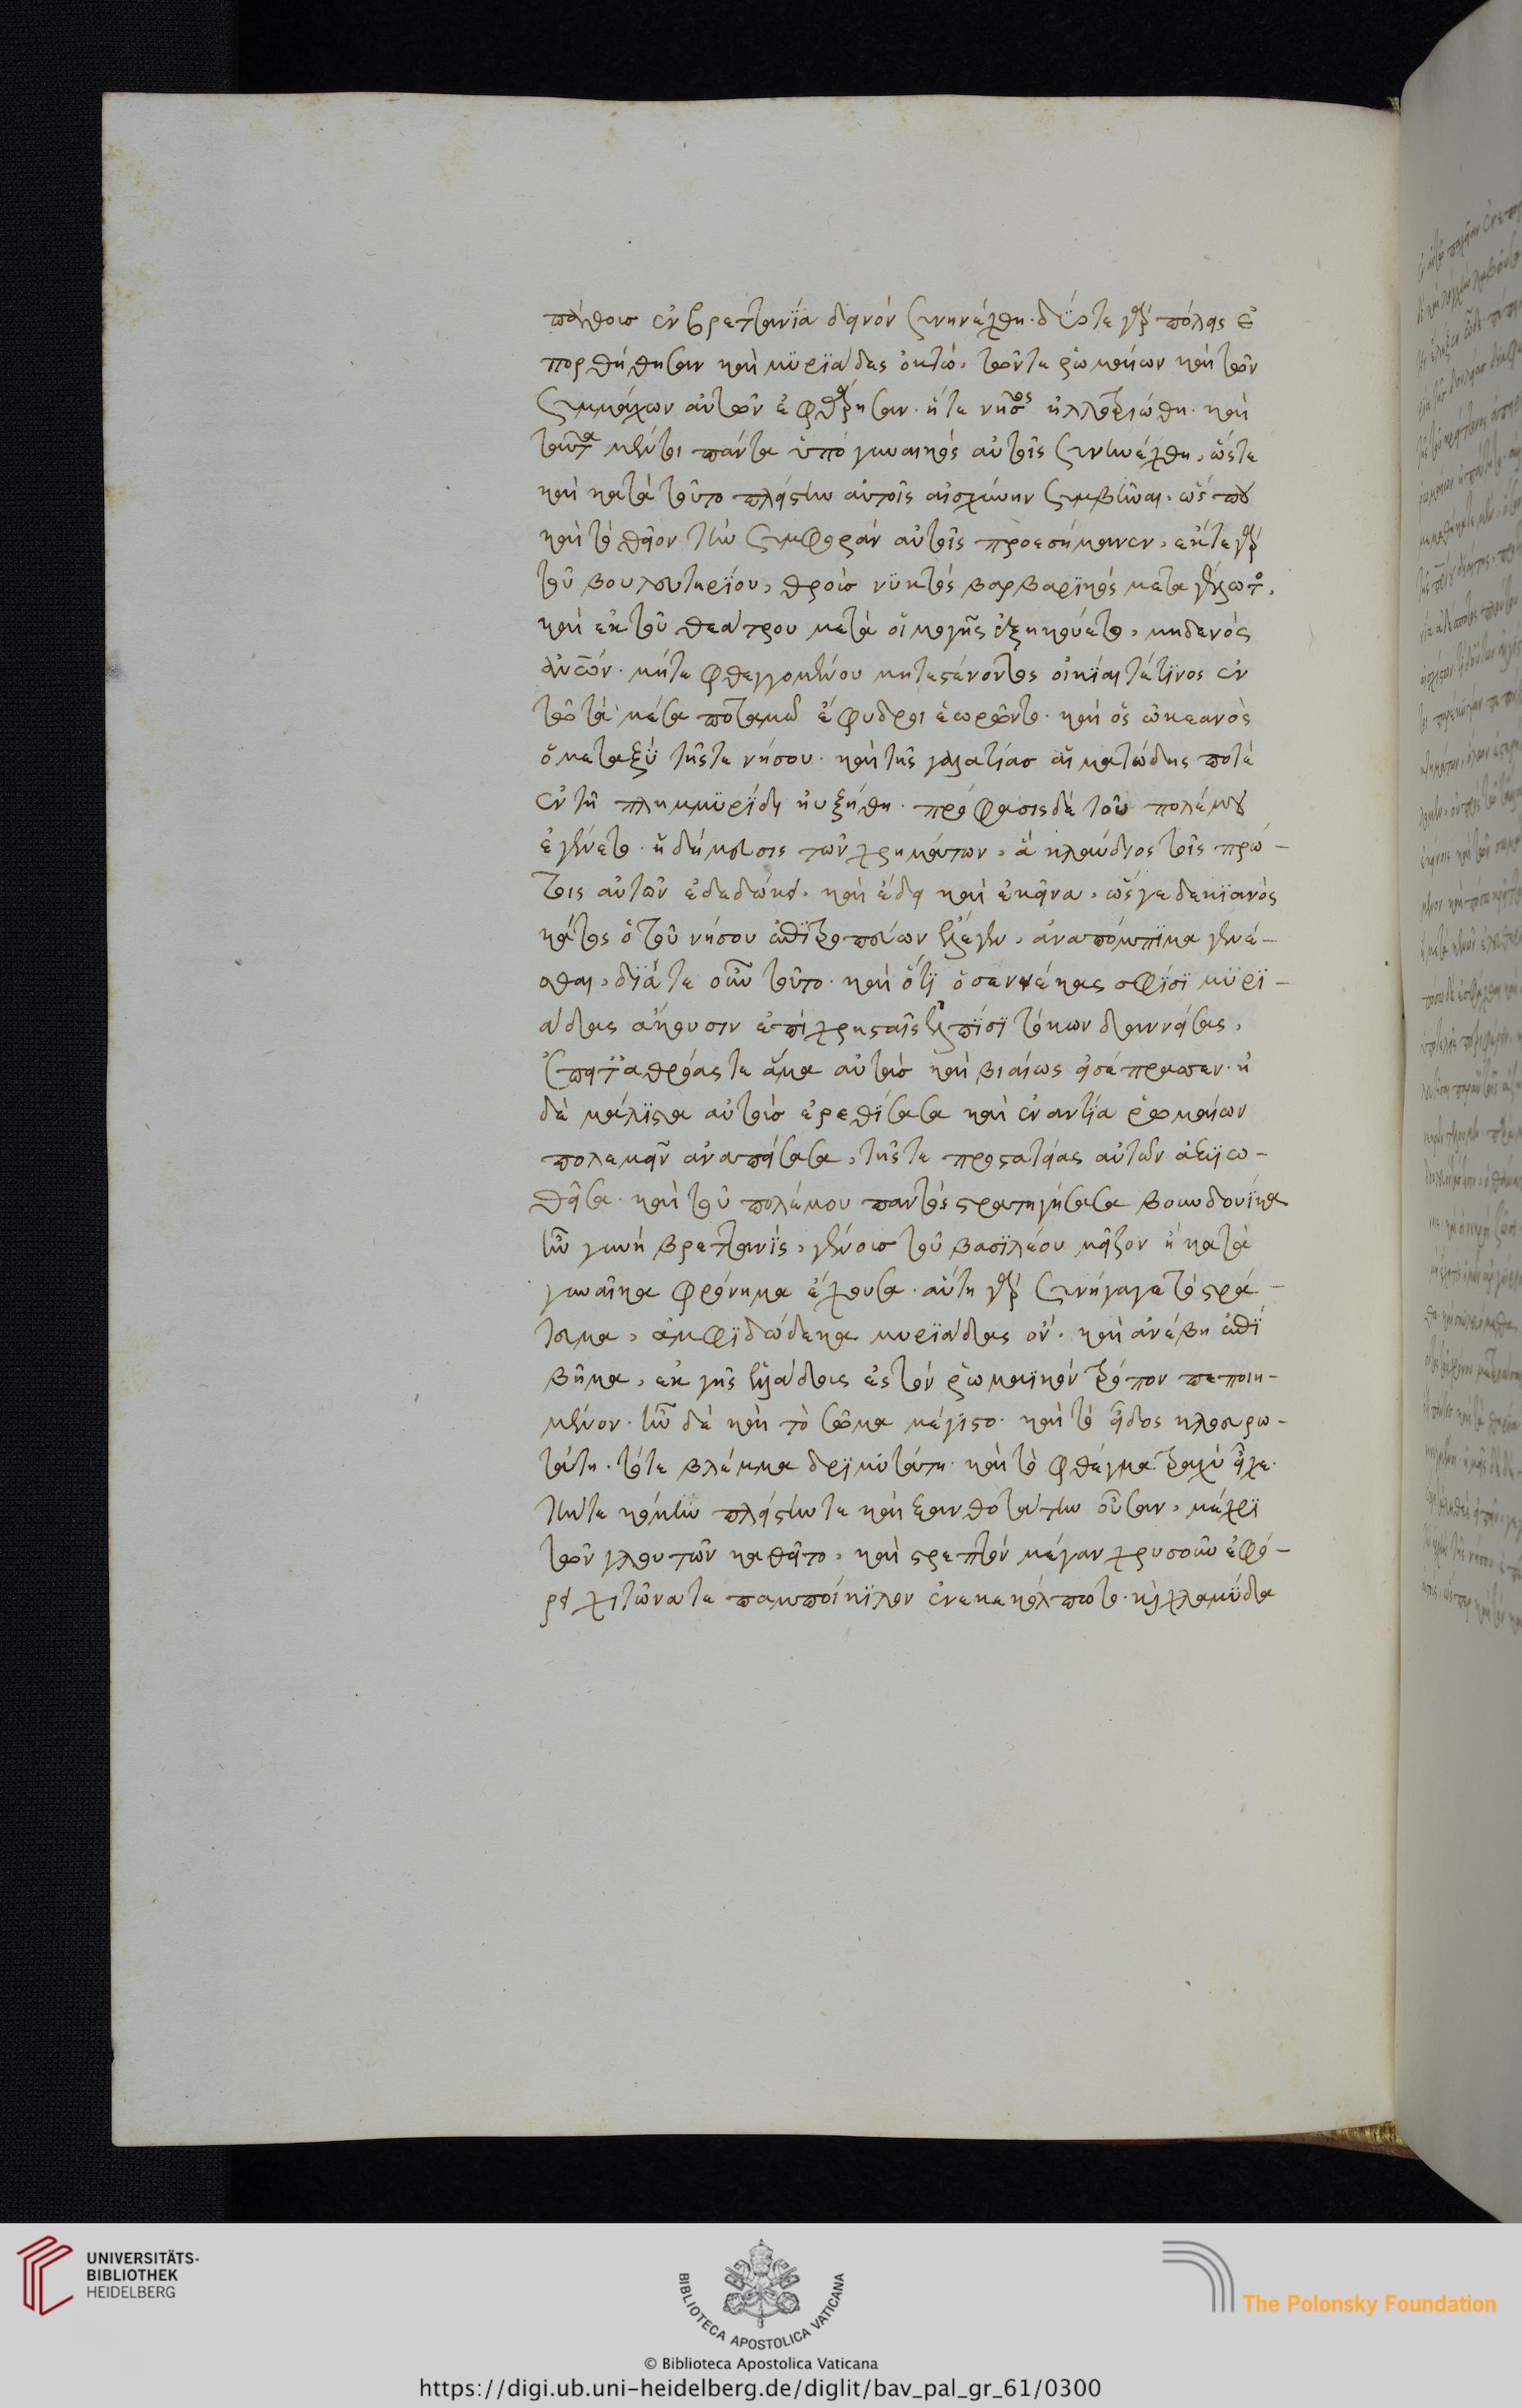 πάθοισ ἐν βρεττανΐα δεινόν συνηνέχθη· δύοτε γὰρ πόλεις ἐ
πορθήθησαν καὶ μϋρϊάδες ὀκτώ, τῶντε ῥωμαίων καὶ τῶν
συμμάχων αὐτῶν ἐφθάρησαν· ἥτε νῆσος ἠλλοτριώθη· καὶ
ταῦτα μέντοι πάντα ὑπό γυναικός αὐτοῖς συνηνέχθη, ὥστε
καὶ κατὰ τοῦτο πλείστην αὐτοῖς αἰσχύνην συμβῆναι· ὥς που
καὶ τό θεῖον τὴν συμφοράν αὐτοῖς προεσήμανεν, ἐκτε γὰρ
τοῦ βουλευτηρΐου, θροῖσ νϋκτός βαρβαρϊκός μετα γέλωτο,
καὶ ἐκ τοῦ θεάτρου μετὰ οἰμογῆς ἐξηκούετο, μηδενός
ἀνῶν· μήτε φθεγγομένου μητεστένοντος οἰκΐαι τέτϊνος ἐν
τῶ ταμέσα ποταμῶ ἔφυδροι ἑωρῶντο· καὶ ὅς ὠκεανὸς
ὁ μεταξϋ τῆςτε νήσου· καὶ τῆς γαλατίασ αἱματώδης ποτέ
ἐν τῆ πλημμϋρΐδι ηὐξήθη· πρόφασις δέ τοῦ πολέμου
ἐγένετο· ἡ δήμευσις τῶν χρημάτων, ἅ κλαύδιος τοῖς πρώ-
τοις αὐτῶν ἐδεδώκει· καὶ ἔδει καὶ ἐκεῖνα, ὥσγε δεκϊανὸς
κάτος ὁ τοῦ νήσου ἐπϊτροπεύων ἔλεγεν, ἀναπόμπϊμα γενέ-
σθαι, διάτε οὖν τοῦτο· καὶ ὅτϊ ὁ σενέκας σφϊσϊ μϋρϊ-
άδας ἄκουσιν ἐπὶ χρησταῖς ἐλπΐσϊ τόκων δαννείσας,
ἔπειτα θρόας τε ἅμα αὐτὰσ καὶ βιαίως εἰσέπρασσεν· ἡ
δὲ μάλϊστα αὐτοὺσ ἐρεθΐσασα καὶ ἐναντία ῥωμαίων
πολεμεῖν ἀναπείσασα, τῆςτε προστατείας αὐτῶν ἀξιω-
θεῖσα· καὶ τοῦ πολέμου παντός στρατηγήσασα βουνδουΐκα
ἦν γυνή βρεττανΐς, γένοισ τοῦ βασϊλέου μεῖζον ἤ κατά
γυναῖκα φρόνημα ἔχουσα· αὕτη γὰρ συνήγαγε τό στρά-
τευμα, ἀμφϊ δώδεκα μυρϊάδας ὄν· καὶ ἀνέβη ἐπϊ
βῆμα, ἐκ γῆς ἑλάδους ἐς τόν ῥωμαϊκόν τρόπον πεποιη-
μένον· ἦν δέ καὶ τὸ σῶμα μέγϊστο· καὶ τό εἶδος κλοσρω-
τάτη· τότε βλέμμα δρϊμϋτάτη· καὶ τὸ φθέγμα τραχύ εἶχε·
τήντε κόμην πλείστηντε καὶ ξανθοτάτην οὖσαν, μέχρϊ
τῶν γλουτῶν καθεῖτο, καὶ στρεπτόν μέγαν χρυσοῦν ἐφό-
ρει χιτῶνατε παμποίκϊλον ἐνεκεκόλπωτο· καὶ χλαμϋδα
UNIVERSITÄTS-
BIBLIOTHEK
HEIDELBERG
BIBLIOTECA APOSTOLICA VATICANA
The Polonsky Foundation
© Biblioteca Apostolica Vaticana
https://digi.ub.uni-heidelberg.de/diglit/bav_pal_gr_61/0300